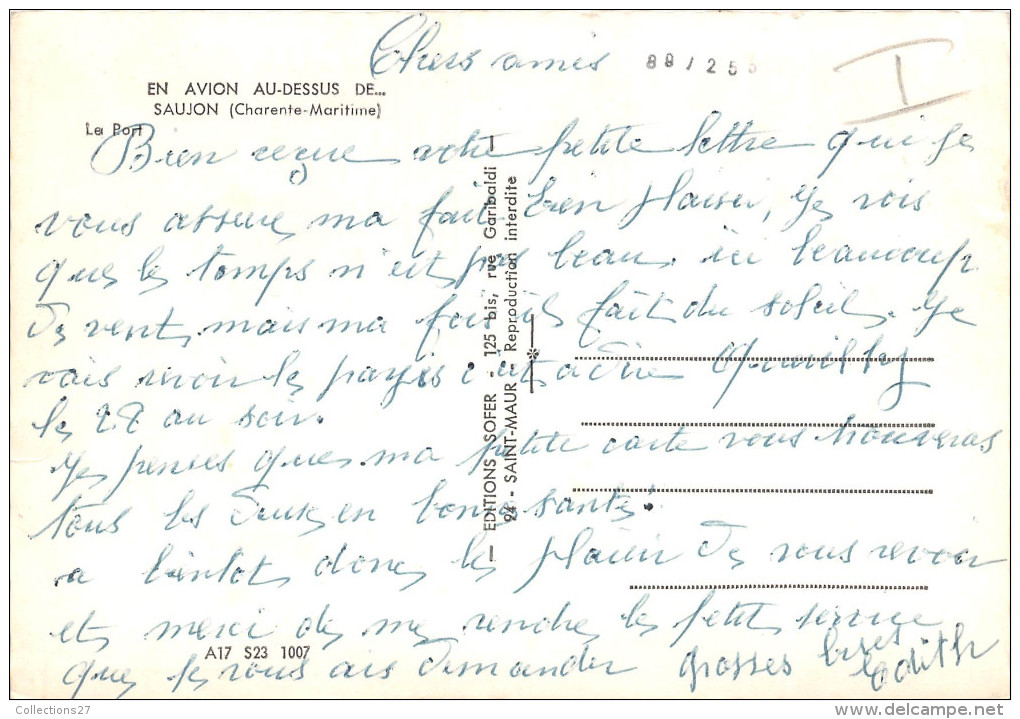 Chers amis 88/255
EN AVION AU-DESSUS DE...
SAUJON (Charente-Maritime)
Le Port
Bien reçue votre petite lettre qui je
vous assure ma fait bien plaisir, je vois
que le temps n'est pas beau. ici beaucoup
de vent, mais ma fois il fait du soleil. je
vais revoir le pays c'est a dire
le 28 au soir.
je penses que ma petite carte vous trouveras
tous les deux en bonne santé.
a bientot donc le plaisir de vous revoir
et merci de me rendre le petit service
que je vous ais demander grosses bises
Edith
— EDITIONS SOFER - 125 bis, rue Garibaldi —
94 - SAINT-MAUR - Reproduction interdite
A17 S23 1007
I
Collections27
www.delcampe.net